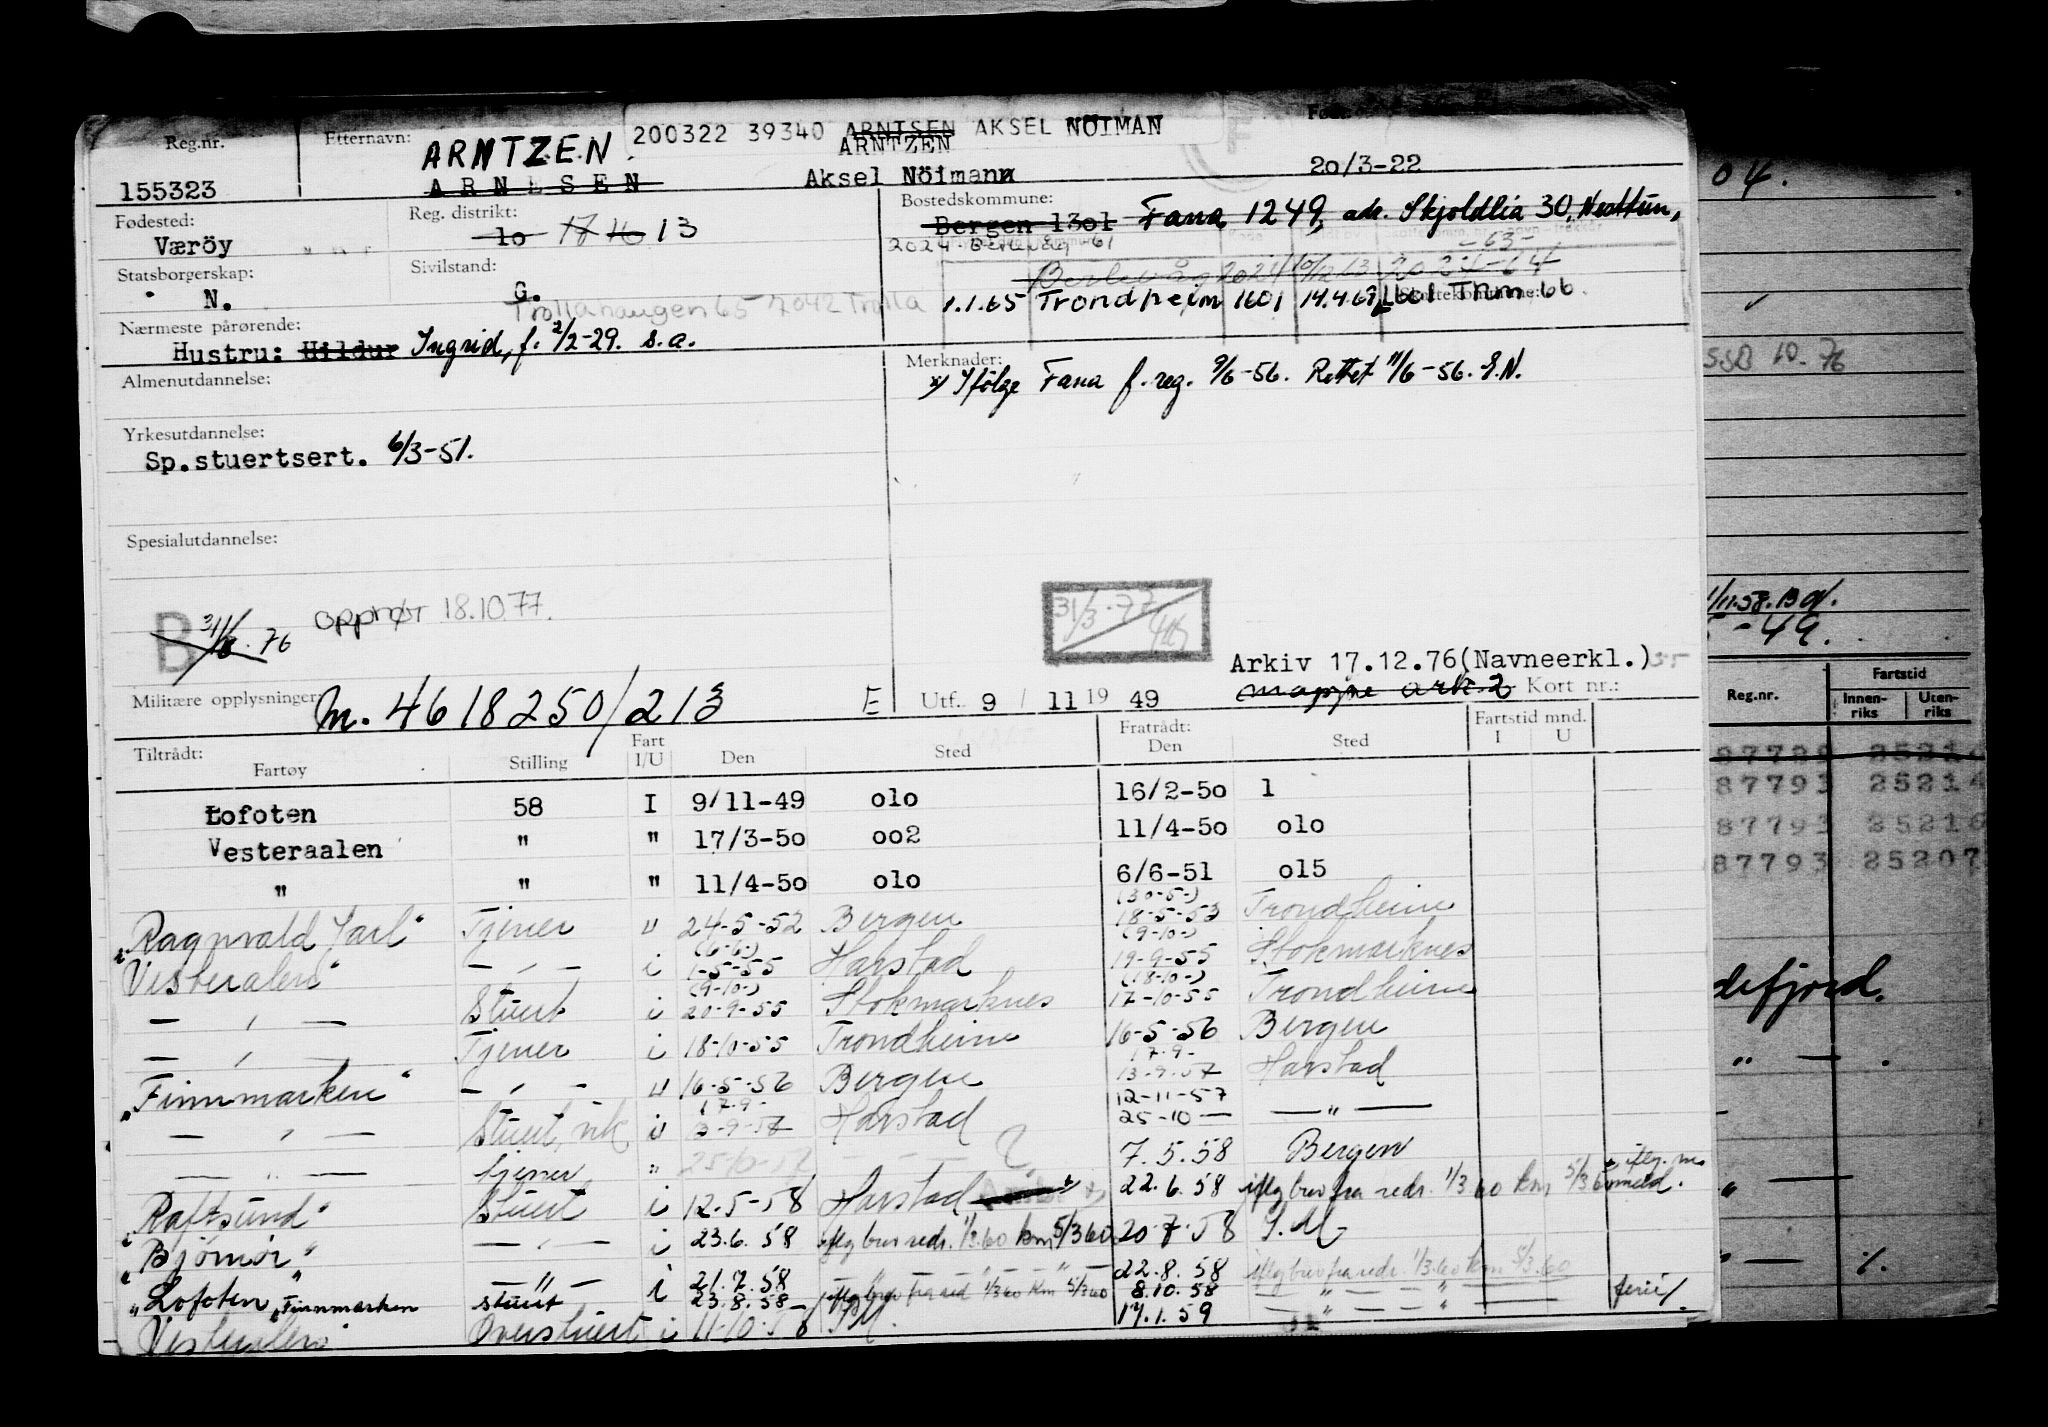 200322 39340 ARNTSEN AKSEL NÖIMAN
ARNTZEN
Reg.nr. Etternavn: ARNTZEN
155323 ARNTSEN Aksel Nöimann 20/3-22
Fødested: Reg. distrikt: Bostedskommune:
Væröy 10 17 16 13 Bergen 1301 Fana 1249, adr. Skjoldlia 30, Nesttun,
2024 Berlevåg 61 -63-
Statsborgerskap: Sivilstand: Berlevåg 2024 10/12 63 2024-64
N. G. 1.1.65 Trondheim 1601 14.4.69 1601 Trhm 66.
Trollahaugen 65 7042 Trolla Skattekommune:
Nærmeste pårørende:
Hustru: Hildur Ingrid, f. 2/2-29. s.a.
Merknader:
x) Ifölge Fana f.reg. 9/6-56. Rettet 11/6-56. E.N.
Almenutdannelse:
Yrkesutdannelse:
Sp.stuertsert. 6/3-51.
Spesialutdannelse:
B 31/8.76 Opphør 18.10.77.
31/3.77
Arkiv 17.12.76(Navneerkl.)
Militære opplysninger: M. 4618250/213 E Utf. 9 / 11 19 49 mappe ark. 2 Kort nr.:
Tiltrådt: Fart Fratrådt: Fartstid mnd.
Fartøy Stilling I/U Den Sted Den Sted I U
Lofoten 58 I 9/11-49 010 16/2-50 1
Vesteraalen " " 17/3-50 002 11/4-50 010
" " " 11/4-50 010 6/6-51 015
(30-5-)
"Ragnvald Jarl" Tjener U 24-5-52 Bergen 18-5-53 Trondheim
(6-6-) (9-10-)
Vesteralen" — " — i 1-5-55 Harstad 19-9-55 Stokmarknes
(9-10-) (18-10-)
— " — Stuert i 20-9-55 Stokmarknes 17-10-55 Trondheim
— " — Tjener i 18-10-55 Trondheim 16-5-56 Bergen
17-9-
"Finnmarken" — " — U 16-5-56 Bergen 13-9-57 Harstad
17-9- 12-11-57
— " — Stuert, vik U 13-9-57 Harstad 25-10 — — " —
— " — tjener " 25-10-57 — — — ? 7.5.58 Bergen
"Raftsund" Stuert i 12.5-58 Harstad 22.6.58 iflg brev fra red. 1/3 60 km 5/3 60
"Bjørnør" — " — i 23.6.58 iflg brev redr. 1/3.60 km 5/3 60 20.7.58 S.M
— " — i 21.7.58 — " — — " — 22.8.58 iflg brev fra redr. 1/3.60 km 5/3.60
"Lofoten", "Finnmarken stuert 23.8.58 iflg brev fra red 1/3 60 km 5/3 60 8.10.58 — " — — " — ferie/.
Vesteralen" Overstuert i 11-10-58 S.M. 17.1.59
04.
SSB 10.76
1/11.58. Bg.
-49.
Reg.nr. Fartstid
Innen-riks Uten-riks
87729 2521
87793 25214
87793 25216
87793 25207
defjord.
" — .
" —
" — /.